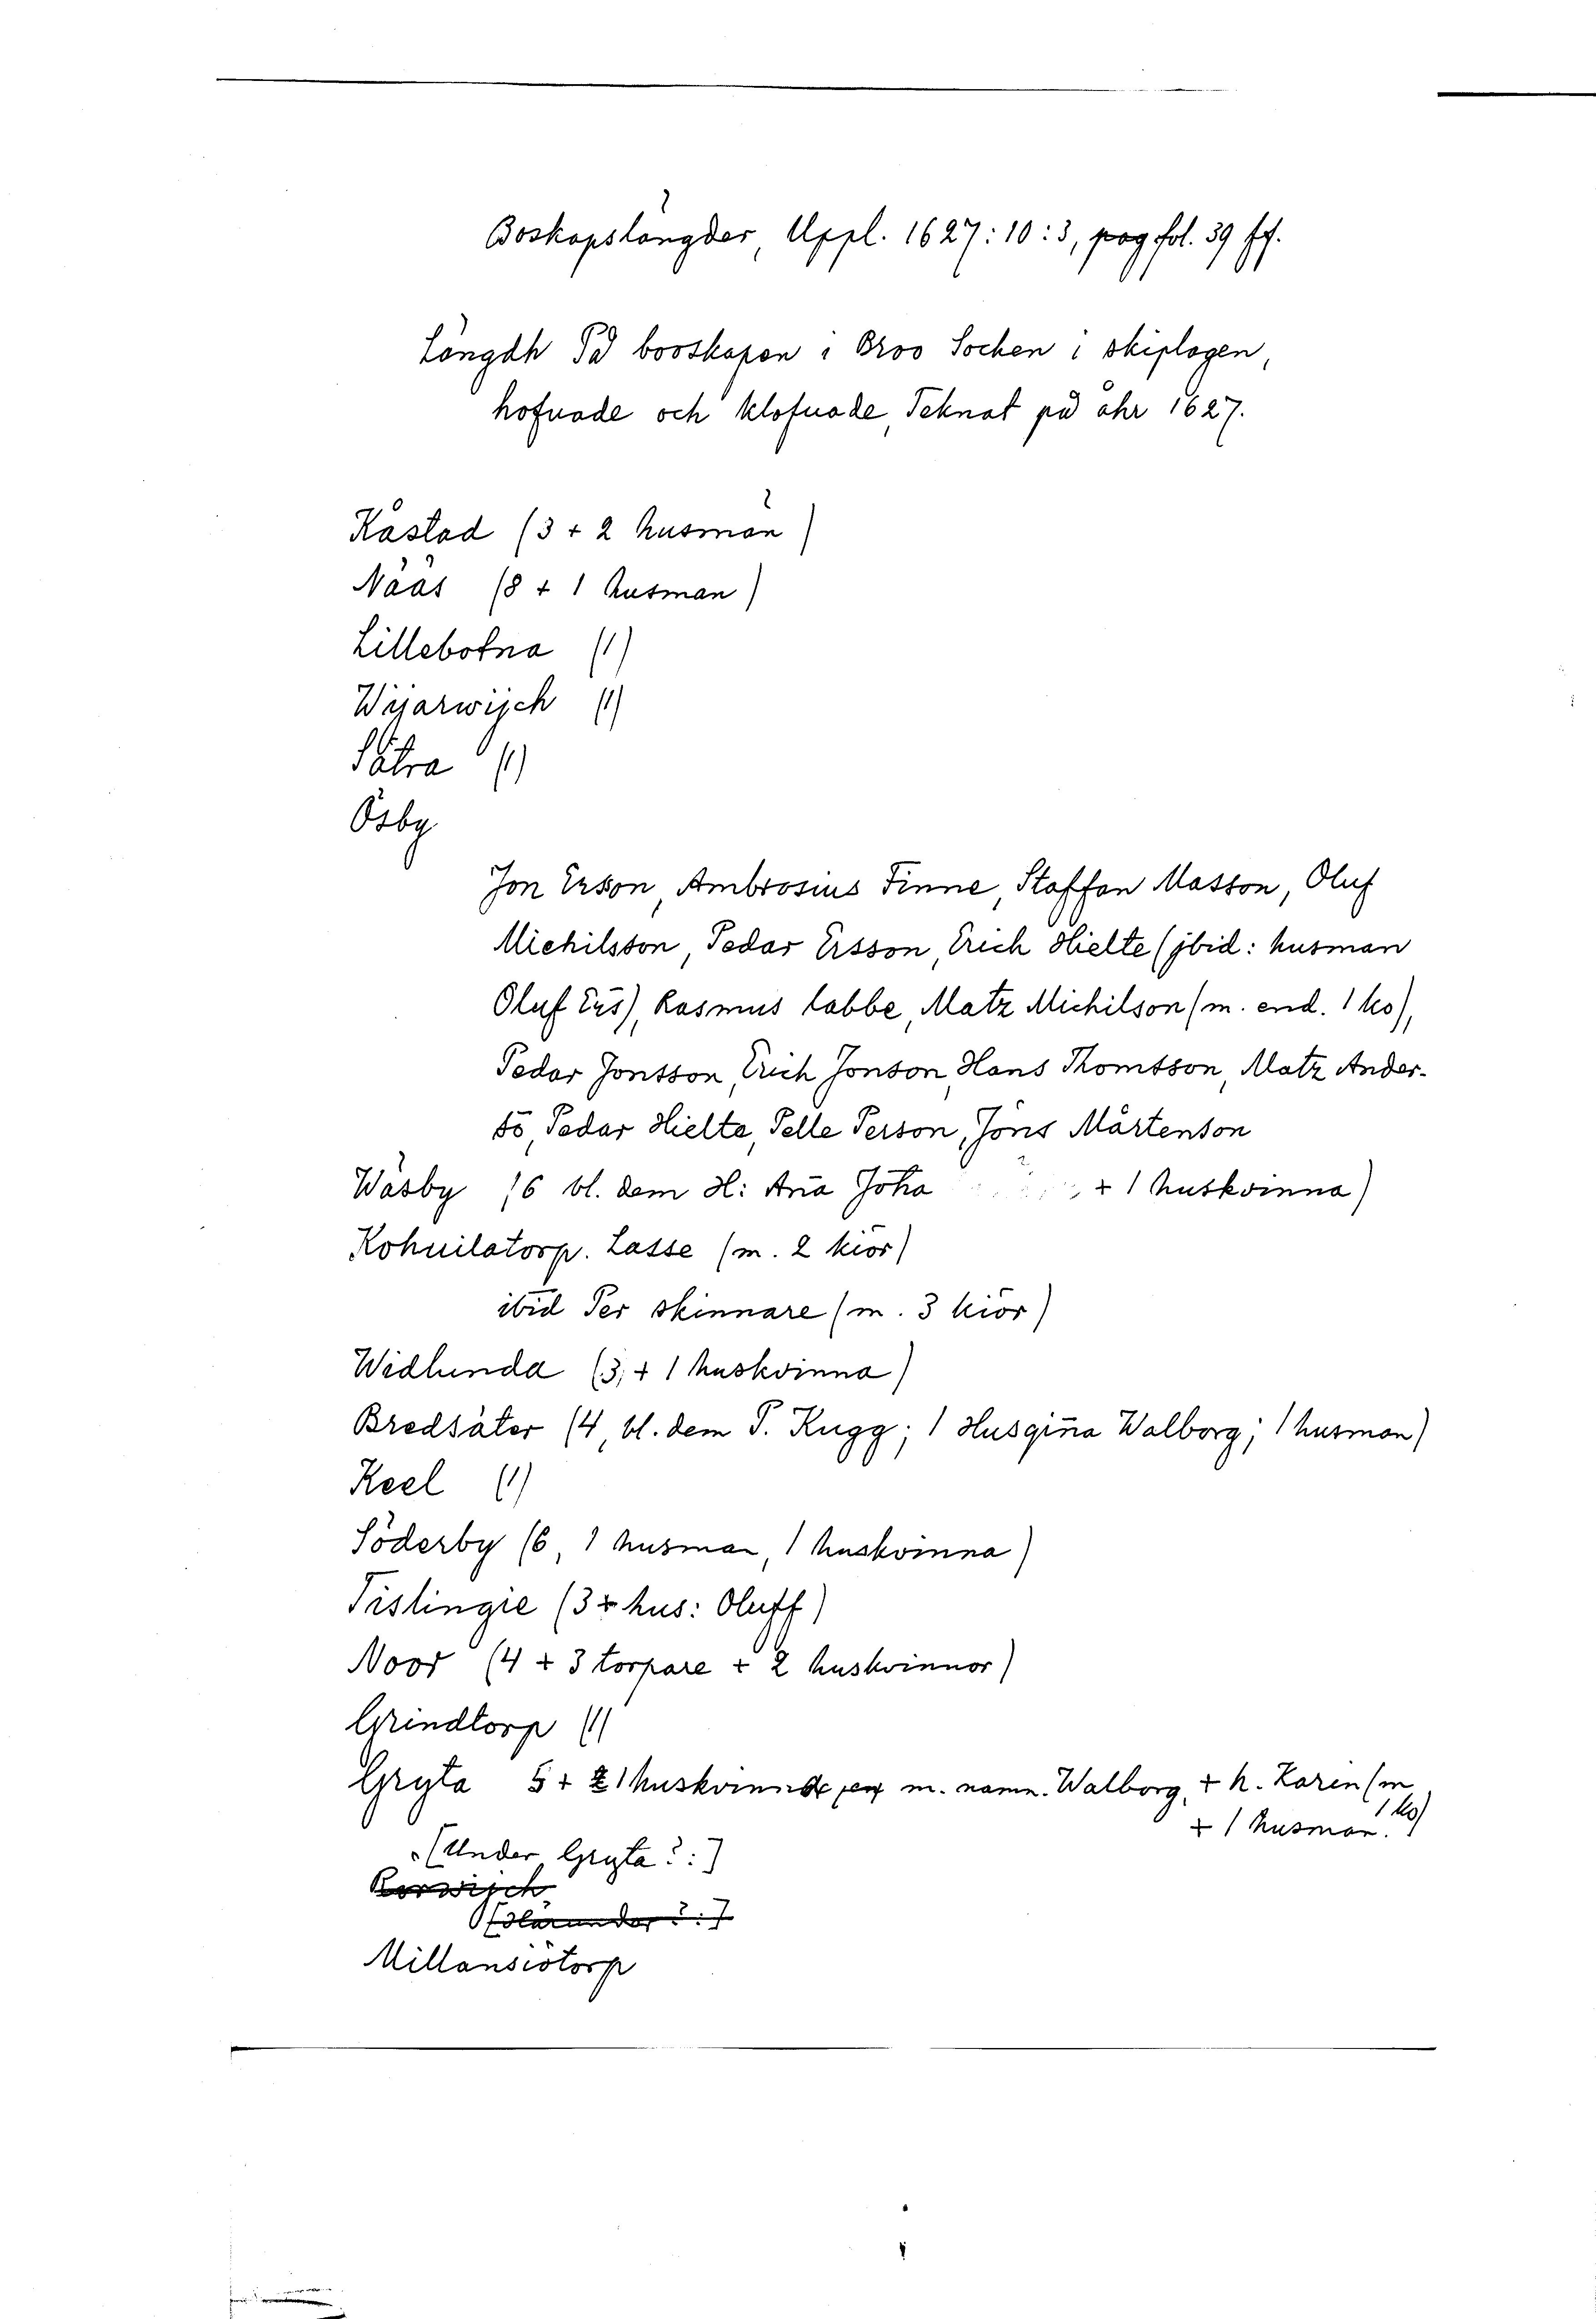 Boskapslängder, Uppl. 1627:10:3, pag fol. 39 ff.
Längdh På booskapen i Broo Sochen i skiplagen,
hofuade och klofuade, Teknat på åhr 1627.
Kåstad (3 + 2 husmän)
Nääs (8 + 1 husman)
Lillebotna (1)
Wijarwijch (1)
Sätra (1)
Ösby
Jon Erson, Ambrosius Finne, Staffan Matson, Oluf
Michilsson, Pedar Ersson, Erich Hielte (jbid: husman
Oluf Ers), Rasmus labbe, Matz Michilson (m. end. 1 ko),
Pedar Jonsson, Erich Jonson, Hans Thomsson, Matz Ander-
sō, Pedar Hielte, Pelle Person, Jöns Mårtenson
Wäsby (6 bl. dem H: Ana Joha + 1 huskvinna)
Kohuilatorp. Lasse (m. 2 kiör)
ibid Per skinnare (m. 3 kiör)
Widlunda (3, + 1 huskvinna)
Bredsäter (4, bl. dem P. Kugg; 1 Husqiña Walborg; 1 husman)
Keel (1)
Söderby (6, 1 husman, 1 huskvinna)
Tislingie (3 + hus: Oluff)
Noor (4 + 3 torpare + 2 huskvinnor)
Grindtorp (1)
Gryta 5 + 1 huskvinna m. namn. Walborg, + h. Karin (m
1 ko)
+ 1 husman.
[Under Gryta?:]
Korwijch
[Härunder?:]
Millansiötorp